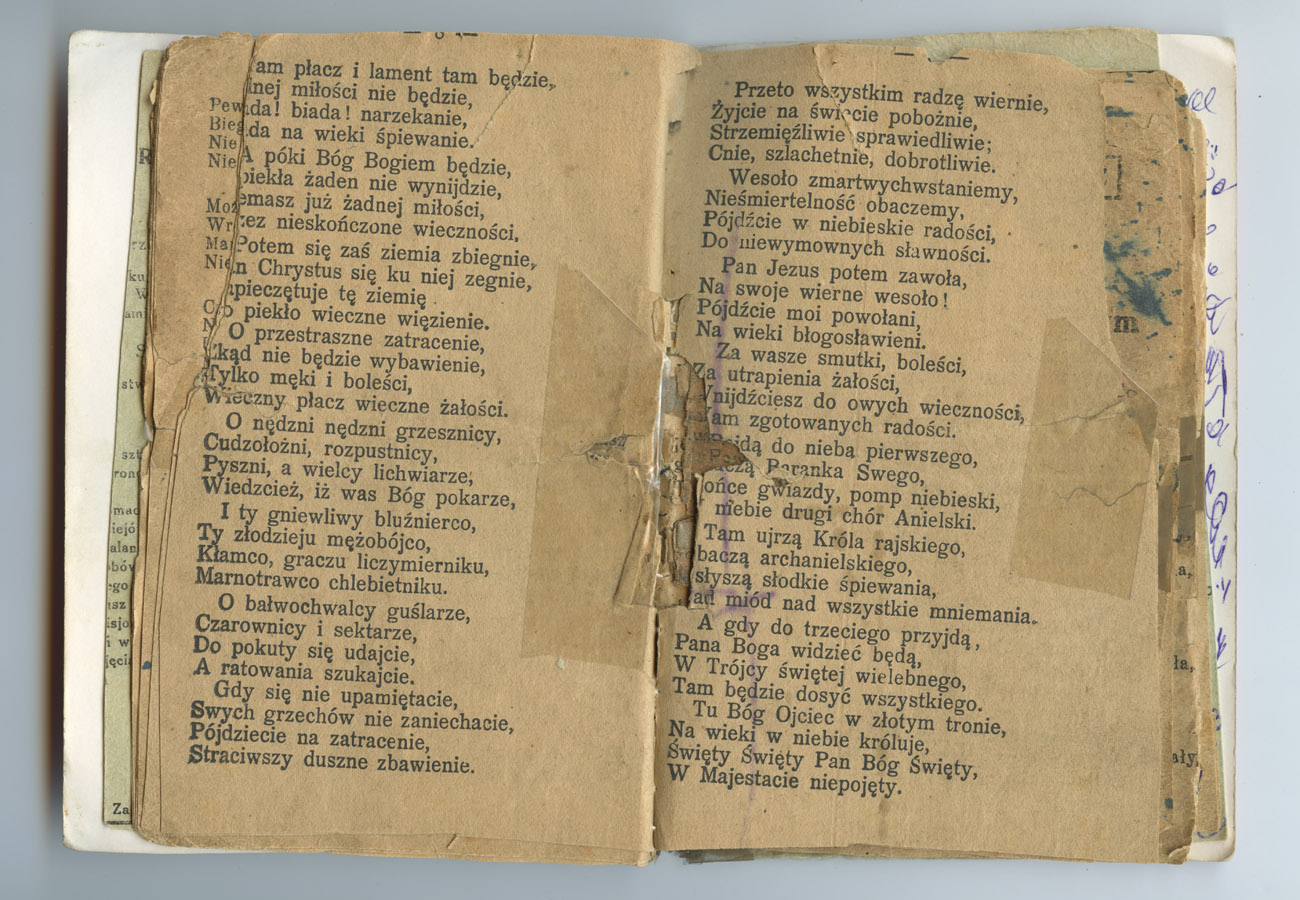 am płacz i lament tam będzie,
nej miłości nie będzie,
da! biada! narzekanie,
da na wieki śpiewanie.
A póki Bóg Bogiem będzie,
piekła żaden nie wynijdzie,
emasz już żadnej miłości,
zez nieskończone wieczności.
Potem się zaś ziemia zbiegnie,
n Chrystus się ku niej zegnie,
pieczętuje tę ziemię
piekło wieczne więzienie.
O przestraszne zatracenie,
Zkąd nie będzie wybawienie,
Tylko męki i boleści,
Wieczny płacz wieczne żałości.
O nędzni nędzni grzesznicy,
Cudzołożni, rozpustnicy,
Pyszni, a wielcy lichwiarze,
Wiedzcież, iż was Bóg pokarze,
I ty gniewliwy bluźnierco,
Ty złodzieju mężobójco,
Kłamco, graczu liczymierniku,
Marnotrawco chlebietniku.
O bałwochwalcy guślarze,
Czarownicy i sektarze,
Do pokuty się udajcie,
A ratowania szukajcie.
Gdy się nie upamiętacie,
Swych grzechów nie zaniechacie,
Pójdziecie na zatracenie,
Straciwszy duszne zbawienie.
Przeto wszystkim radzę wiernie,
Żyjcie na świecie pobożnie,
Strzemięźliwie sprawiedliwie;
Cnie, szlachetnie, dobrotliwie.
Wesoło zmartwychwstaniemy,
Nieśmiertelność obaczemy,
Pójdźcie w niebieskie radości,
Do niewymownych sławności.
Pan Jezus potem zawoła,
Na swoje wierne wesoło!
Pójdźcie moi powołani,
Na wieki błogosławieni.
Za wasze smutki, boleści,
Za utrapienia żałości,
Wnijdźciesz do owych wieczności,
Wam zgotowanych radości.
Pojdą do nieba pierwszego,
czą Baranka Swego,
ońce gwiazdy, pomp niebieski,
niebie drugi chór Anielski.
Tam ujrzą Króla rajskiego,
baczą archanielskiego,
słyszą słodkie śpiewania,
ad miód nad wszystkie mniemania.
A gdy do trzeciego przyjdą,
Pana Boga widzieć będą,
W Trójcy świętej wielebnego,
Tam będzie dosyć wszystkiego.
Tu Bóg Ojciec w złotym tronie,
Na wieki w niebie króluje,
Święty Święty Pan Bóg Święty,
W Majestacie niepojęty.